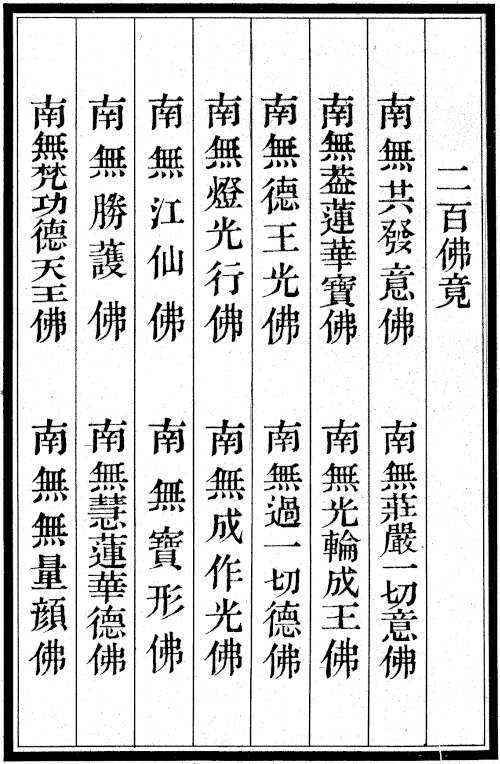 二百佛竟
南無共發意佛　南無莊嚴一切意佛
南無葢蓮華寶佛　南無光輪成王佛
南無德王光佛　南無過一切德佛
南無燈光行佛　南無成作光佛
南無江仙佛　南無寶形佛
南無勝護佛　南無慧蓮華德佛
南無梵功德天王佛　南無無量顔佛